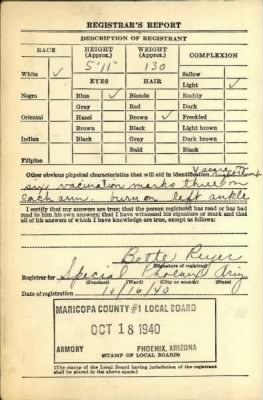 REGISTRAR'S REPORT
DESCRIPTION OF REGISTRANT
RACE
HEIGHT
(Approx.)
WEIGHT
(Approx.)
COMPLEXION
5'11"
130
White ✓
Sallow
EYES
HAIR
Light ✓
Negro
Blue ✓
Blonde
Ruddy
Gray
Red
Dark
Oriental
Hazel
Brown ✓
Freckled
Brown
Black
Light brown
Indian
Black
Gray
Dark brown
Bald
Black
Filipino
Other obvious physical characteristics that will aid in identification
six vacination marks three on
each arm. burn on left ankle
I certify that my answers are true; that the person registered has read or has had
read to him his own answers; that I have witnessed his signature or mark and that
all of his answers of which I have knowledge are true, except as follows:
(Signature of registrar)
Registrar for Special
(Precinct) (Ward) (City or county) (State)
Date of registration 10/16/40
MARICOPA COUNTY #1 LOCAL BOARD
OCT 18 1940
ARMORY PHOENIX, ARIZONA
(STAMP OF LOCAL BOARD)
(The stamp of the Local Board having jurisdiction of the registrant
shall be placed in the above space.)